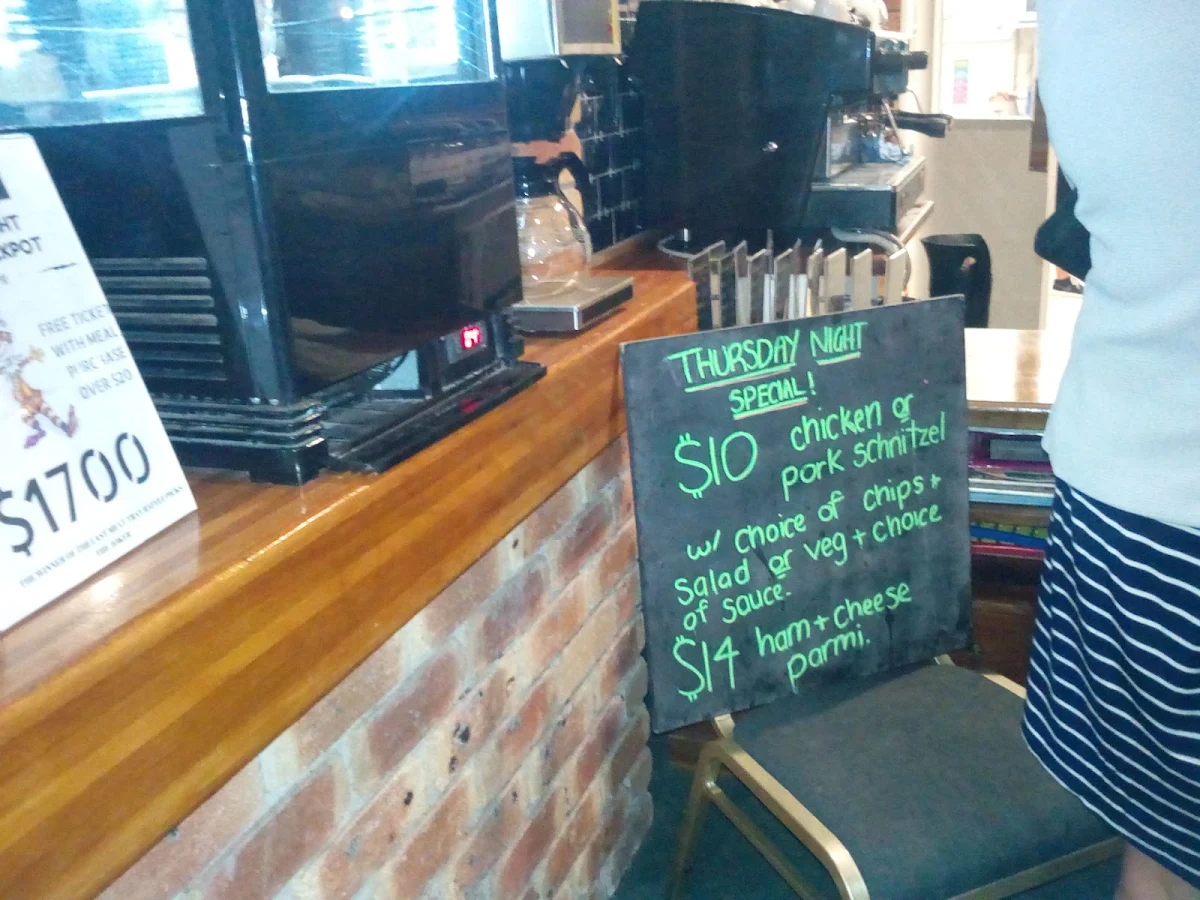 FREE TICKET
WITH MEAL
OVER $20
$1700
THE JOKER
THURSDAY NIGHT
SPECIAL!
$10 chicken or
pork schnitzel
w/ choice of chips +
salad or veg + choice
of sauce.
$14 ham + cheese
parmi.